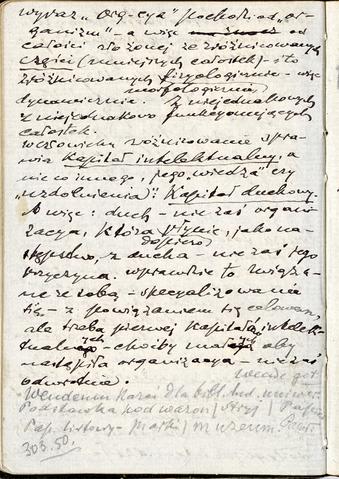 wyraz „org-cya" pochodzi od „or-
ganizm" - a więc od
całości złożonej ze zróżnicowanych
części (mniejszych całostek) - i to
zróżnicowanych fizyologicznie - więc
morfologicznie
dynamicznie. Z niejednakowych
z niejednakowo funkcyonujących
całostek.
W człowieku zróżnicowanie spra-
wia Kapitał intelektualny, a
nie co innego, jego „wiedza" czy
„uzdolnienia": Kapitał duchowy.
A więc: duch - nie zaś organi-
zacya, która płynie, jako na-
dopiero
stępstwo, z ducha - nie zaś jego
przyczyna. Wprawdzie to wiąza-
nie ze sobą - specjalizowanie
się - z powiązaniem się celowem,
ale trzeba pierwej Kapitału intelek-
tualnego choćby aby
nastąpiła organizacya - nie zaś
odwrotnie.
Podstawka pod wazon
Pap. listowy - Marki / Muzeum.
303.50.